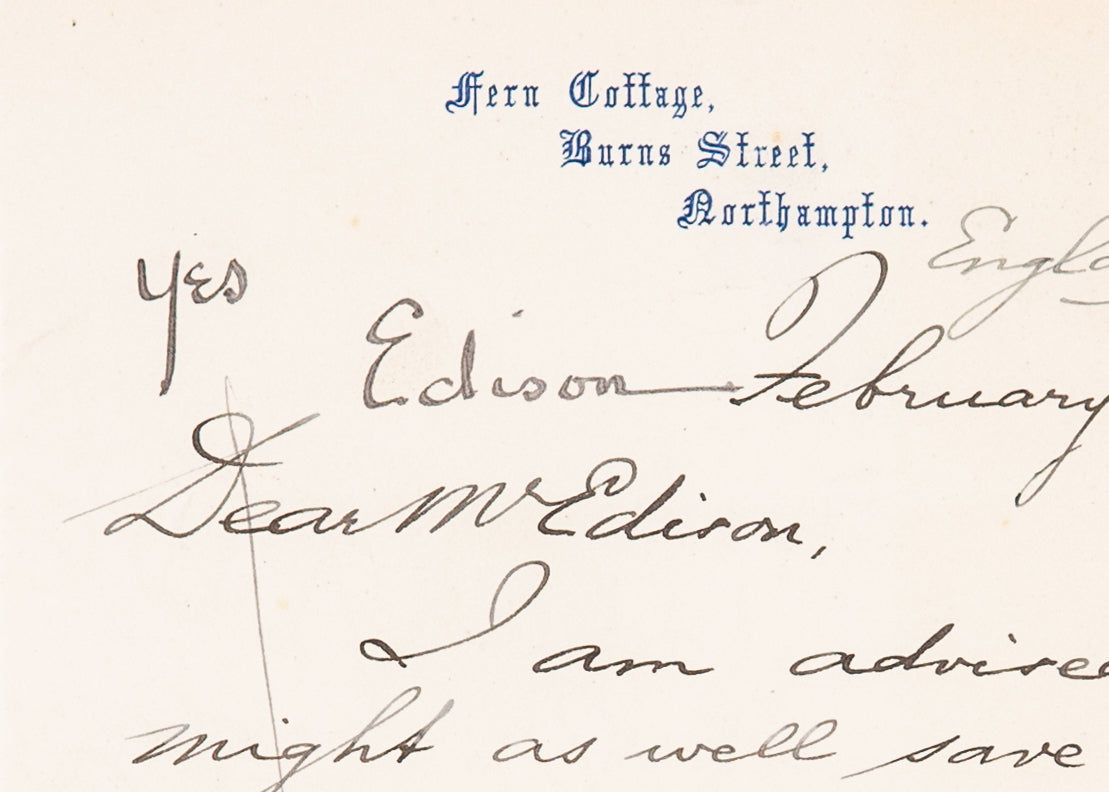 Fern Cottage,
Burns Street,
Northampton.
Engla
yes
Edison February
Dear Mr Edison,
I am advised
might as well save